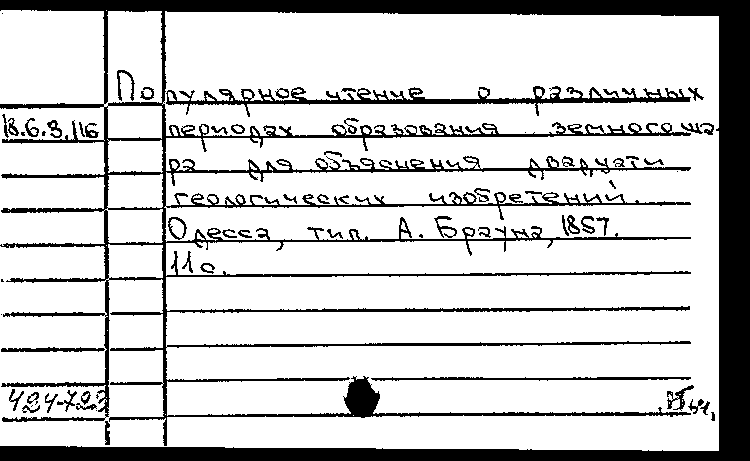 Популярное чтение о различных
18.6.3.116 периодах образования земного ша-
ра для объяснения двадцати
геологических изобретений.
Одесса, тип. А. Брауна, 1857.
11 с.
424-723